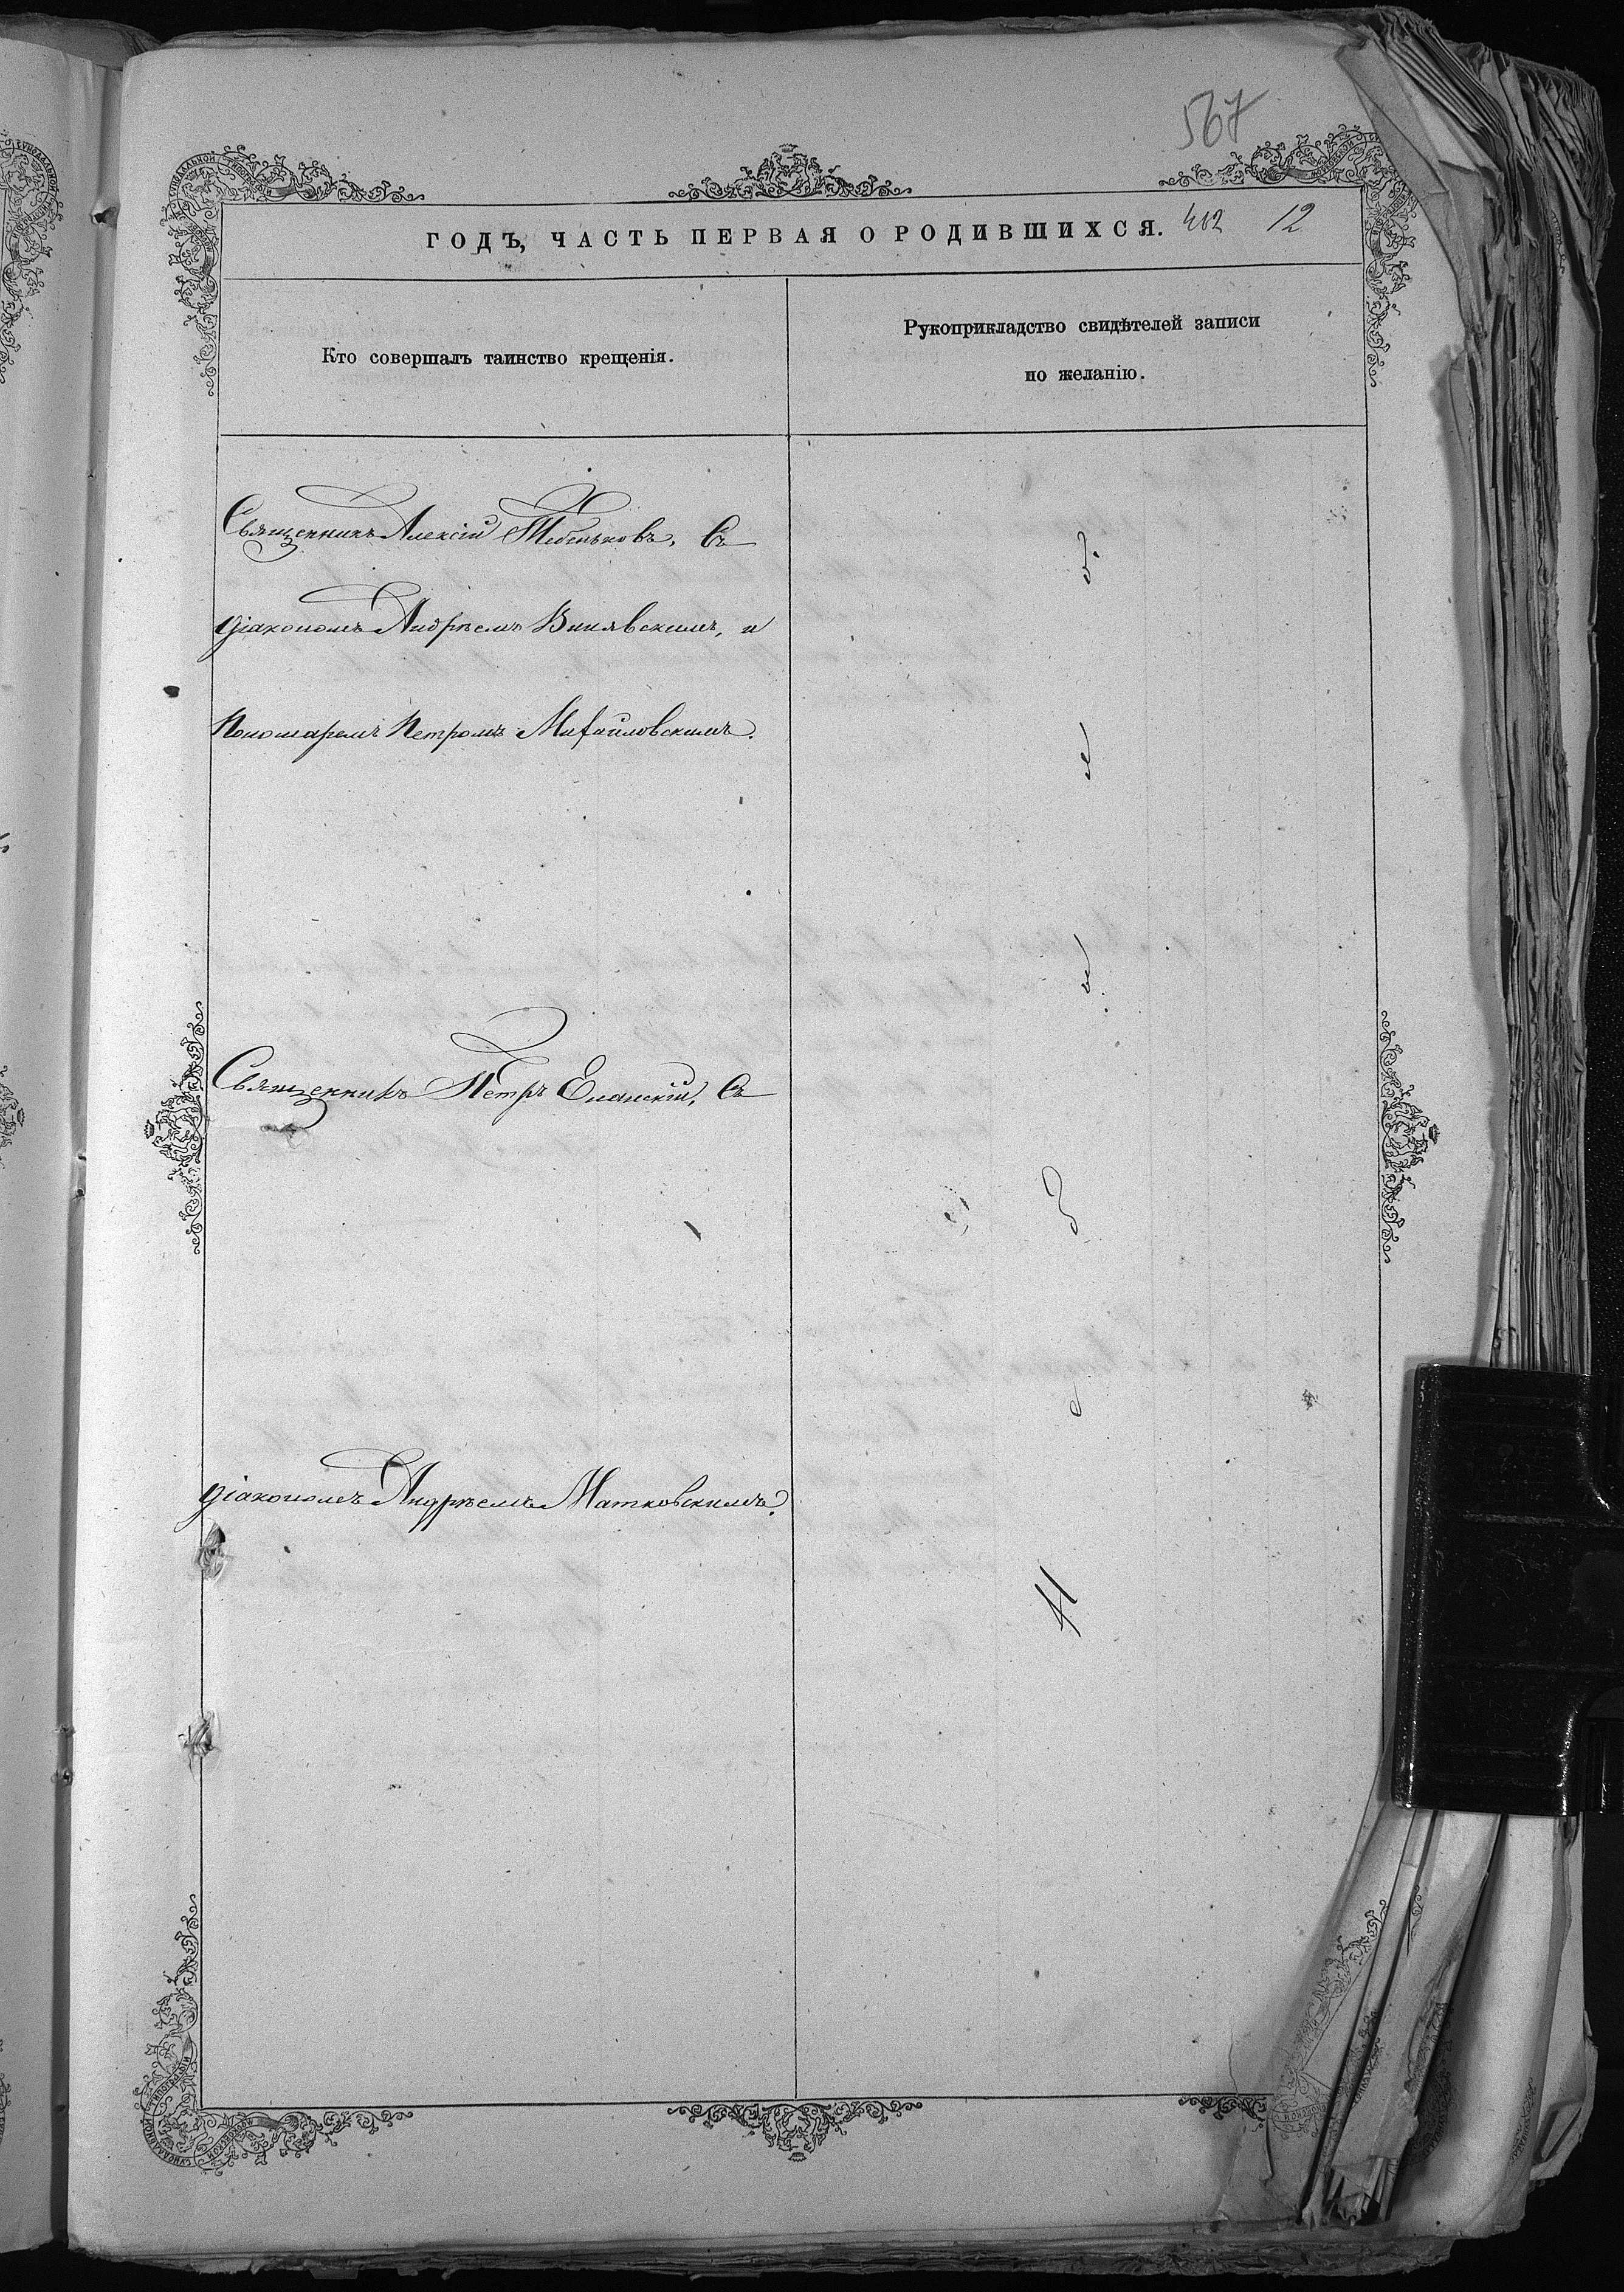 567
ГОДЪ, ЧАСТЬ ПЕРВАЯ О РОДИВШИХСЯ. 402 12
Кто совершалъ таинство крещенія.
Рукоприкладство свидѣтелей записи
по желанію.
Священникъ Алексій Тебеньковъ, Съ
діакономъ Андрѣемъ Винявскимъ, и
Пономаремъ Петромъ Михайловскимъ.
Священникъ Петръ Еланскій, Съ
діакономъ Андрѣемъ Матковскимъ.